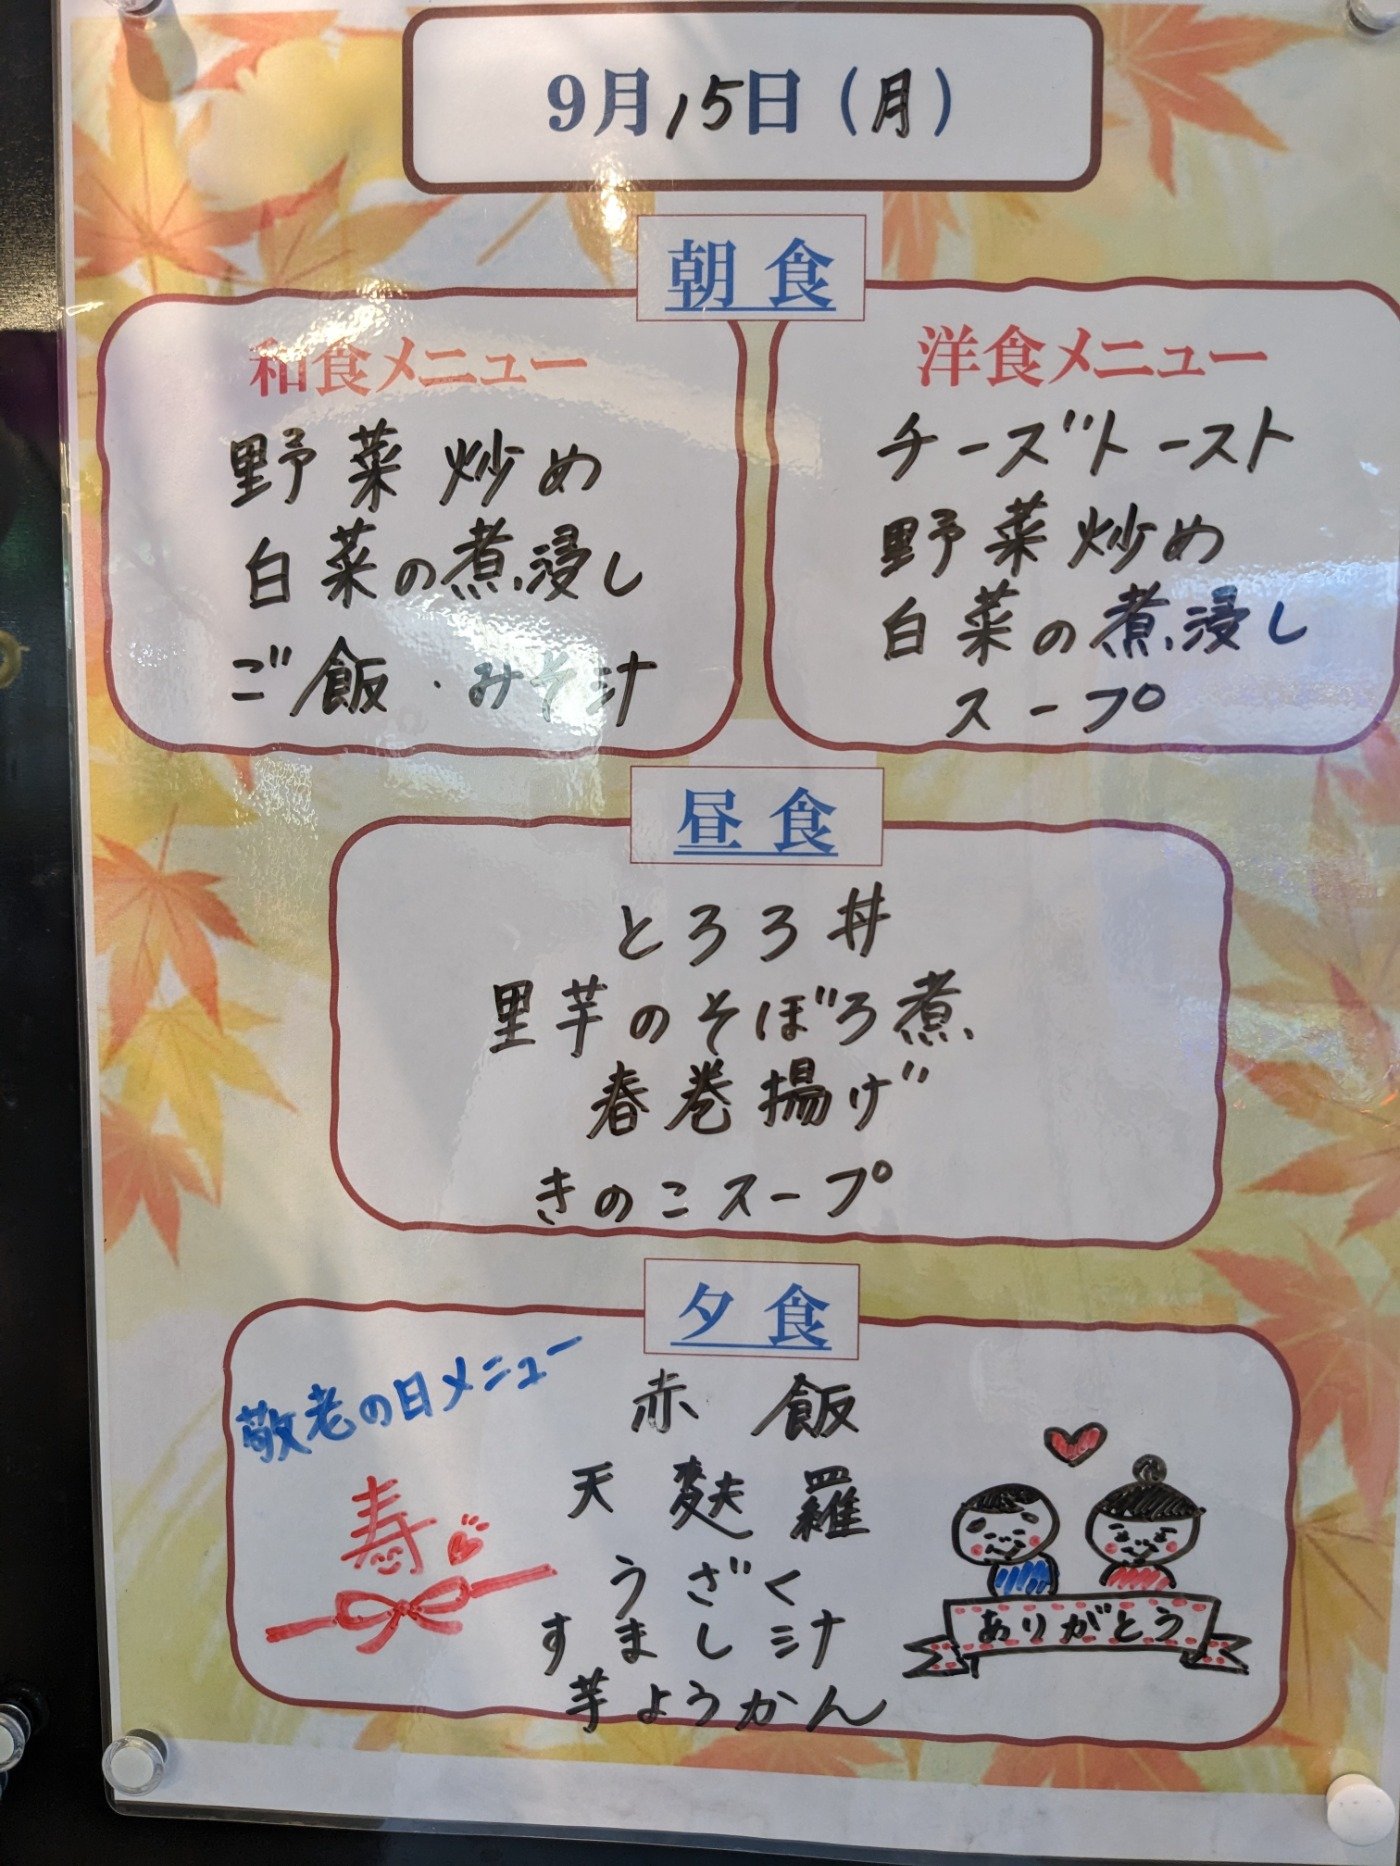 9月15日（月）
朝食
和食メニュー
野菜炒め
白菜の煮浸し
ご飯・みそ汁
洋食メニュー
チーズトースト
野菜炒め
白菜の煮浸し
スープ
昼食
とろろ丼
里芋のそぼろ煮
春巻揚げ
きのこスープ
夕食
敬老の日メニュー
寿
赤飯
天麩羅
うざく
すまし汁
芋ようかん
ありがとう